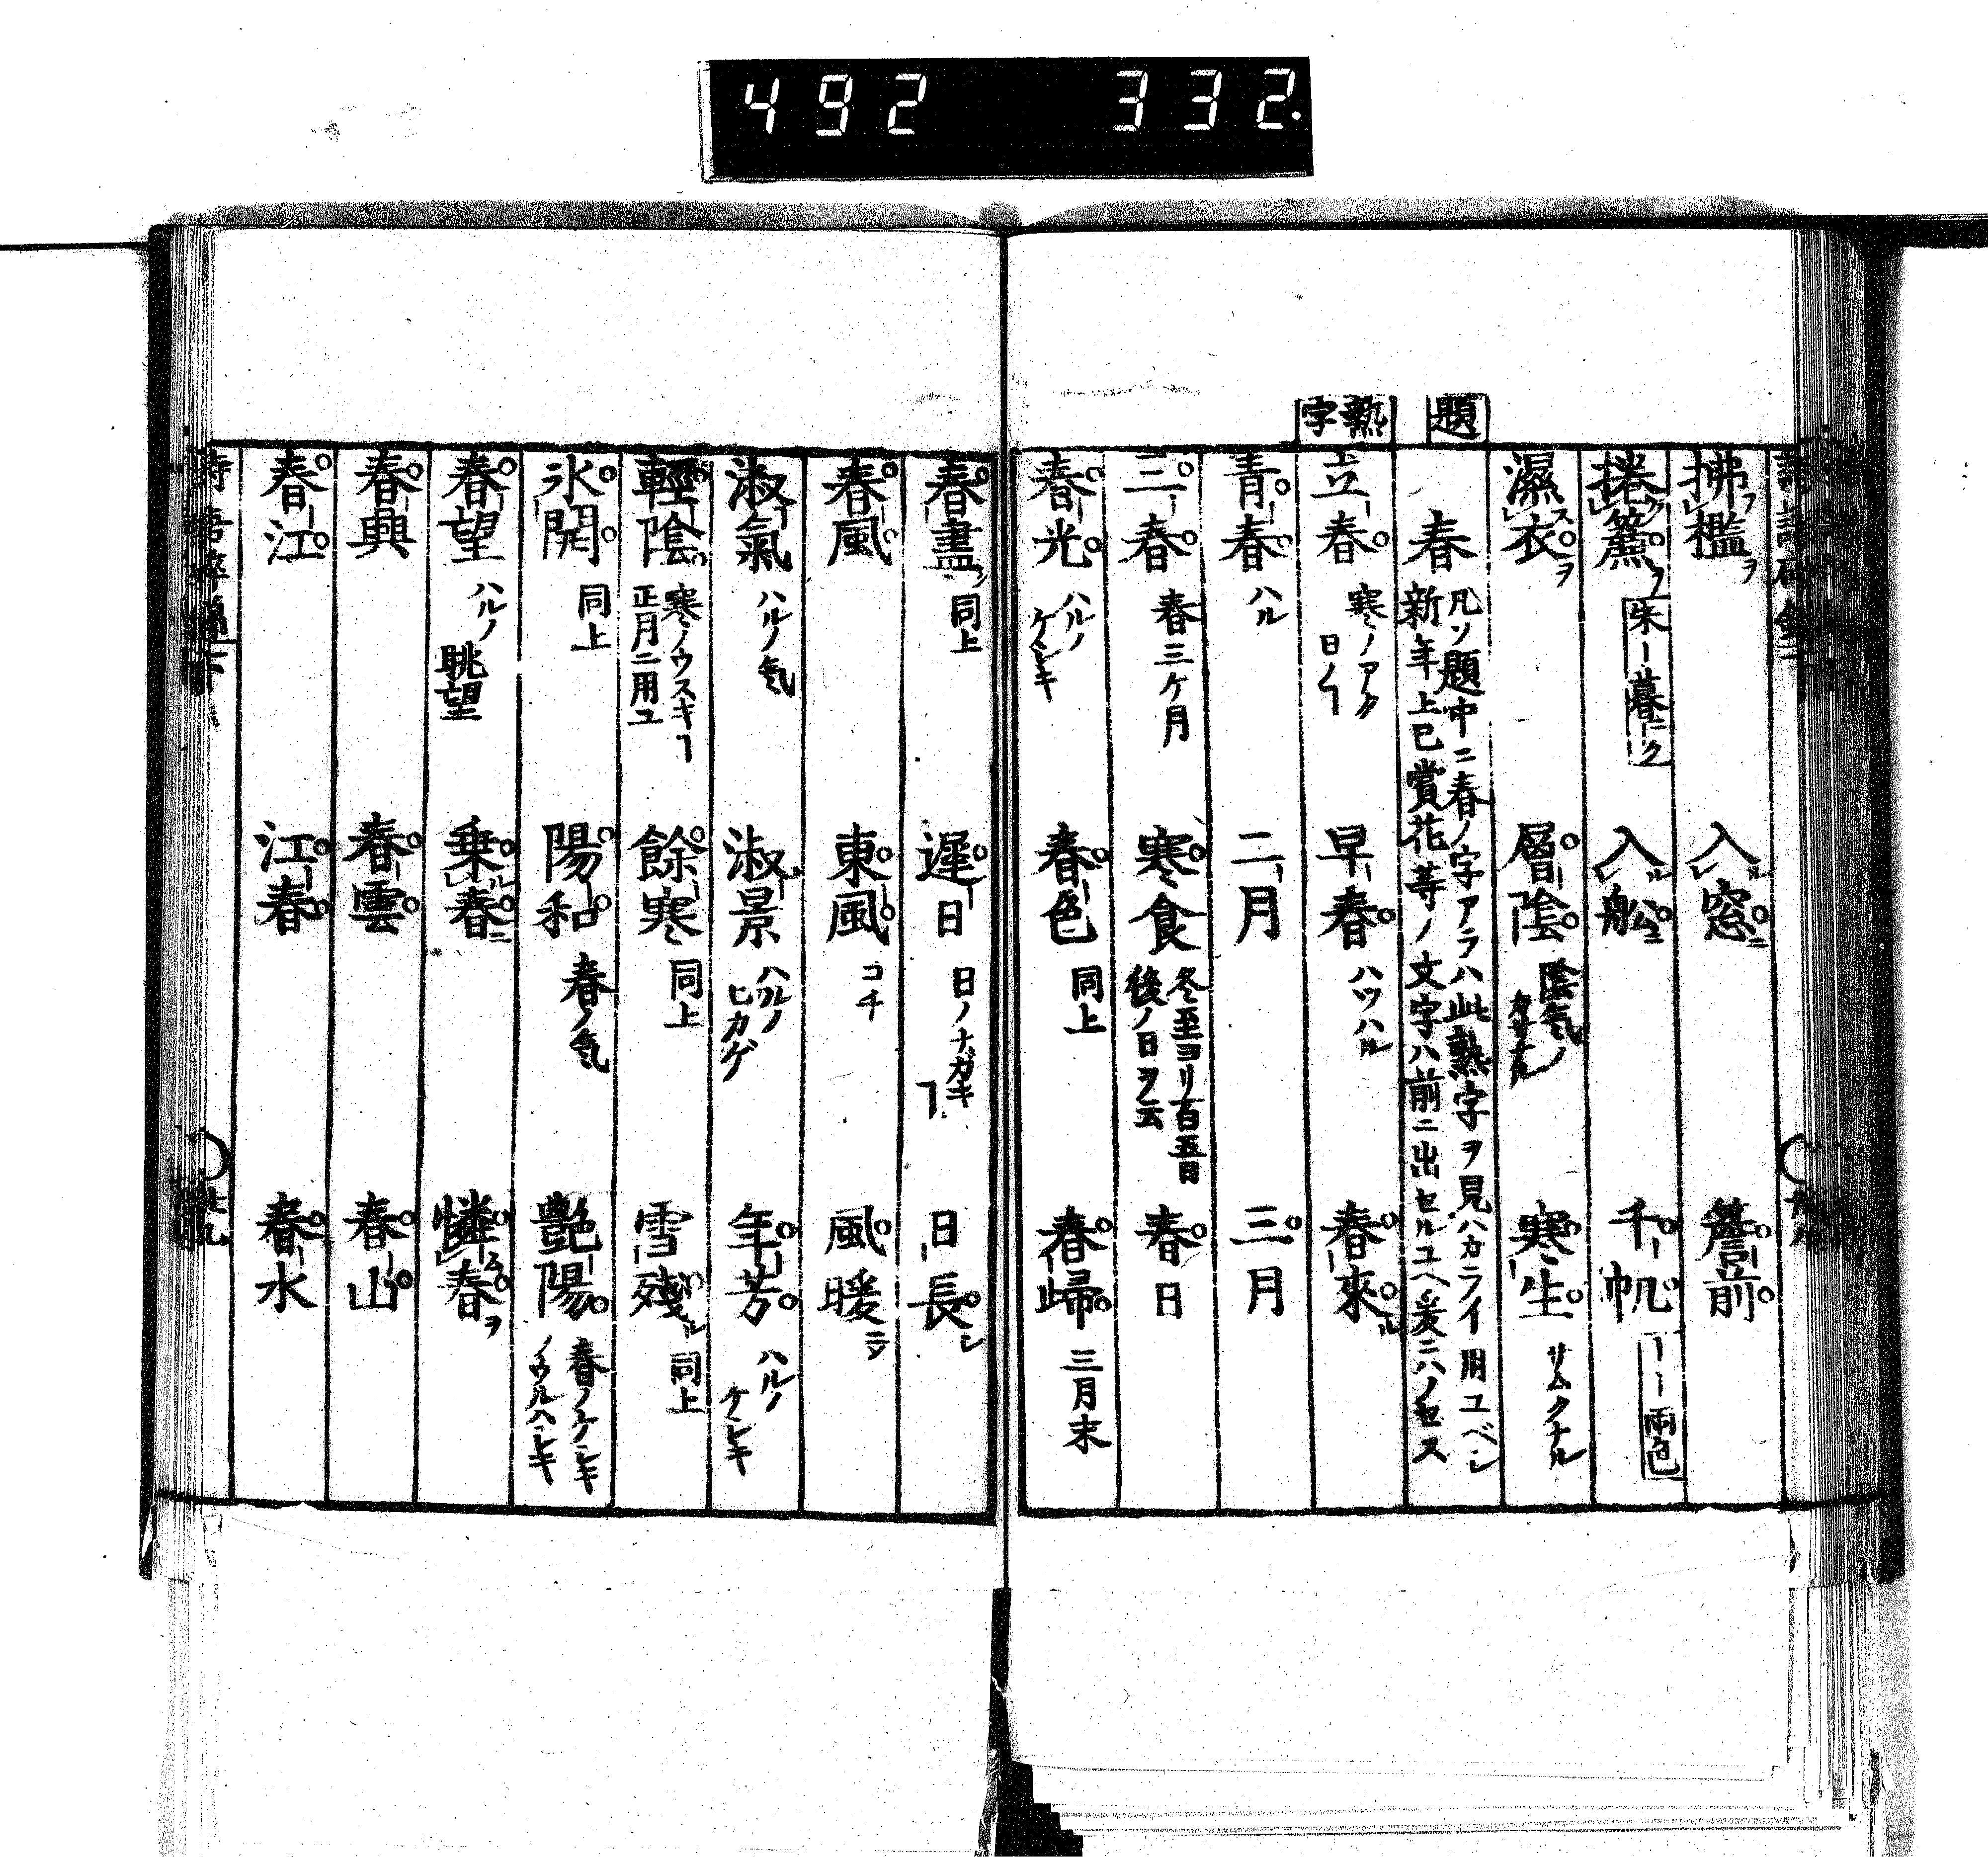 492 332.
題
熟字
拂檻ヲ 入ル窓ニ 簷前
捲ク簾ヲ 朱ー暮ニク 入ル舩ニ 千帆 ーー雨色
濕ス衣ヲ 層陰 陰気ノカサナル 寒生 サムクナル
春 凡ソ題中ニ春ノ字アラハ此熟字ヲ見ハカライ用ユベシ
新年上巳賞花等ノ文字ハ前ニ出セルユヘ爰ニハノセス
立春 寒ノアクル日ノヿ 早春 ハツハル 春來ル
青春 ハル 二月 三月
三春 春三ケ月 寒食 冬至ヨリ百五日後ノ日ヲ云 春日
春光 ハルノケシキ 春色 同上 春歸 三月末
春盡 同上 遲日 日ノナガキヿ 日長シ
春風 東風 コチ 風暖ニシ
淑氣 ハルノ気 淑景 ハルノヒカゲ 年芳 ハルノケシキ
輕陰 寒ノウスキヿ正月ニ用ユ 餘寒 同上 雪殘ル 同上
氷開 同上 陽和 春ノ気 艶陽 春ノケシキノウルハシキ
春望 ハルノ眺望 乗春ニ 憐ム春ヲ
春興 春雲 春山
春江 江春 春水